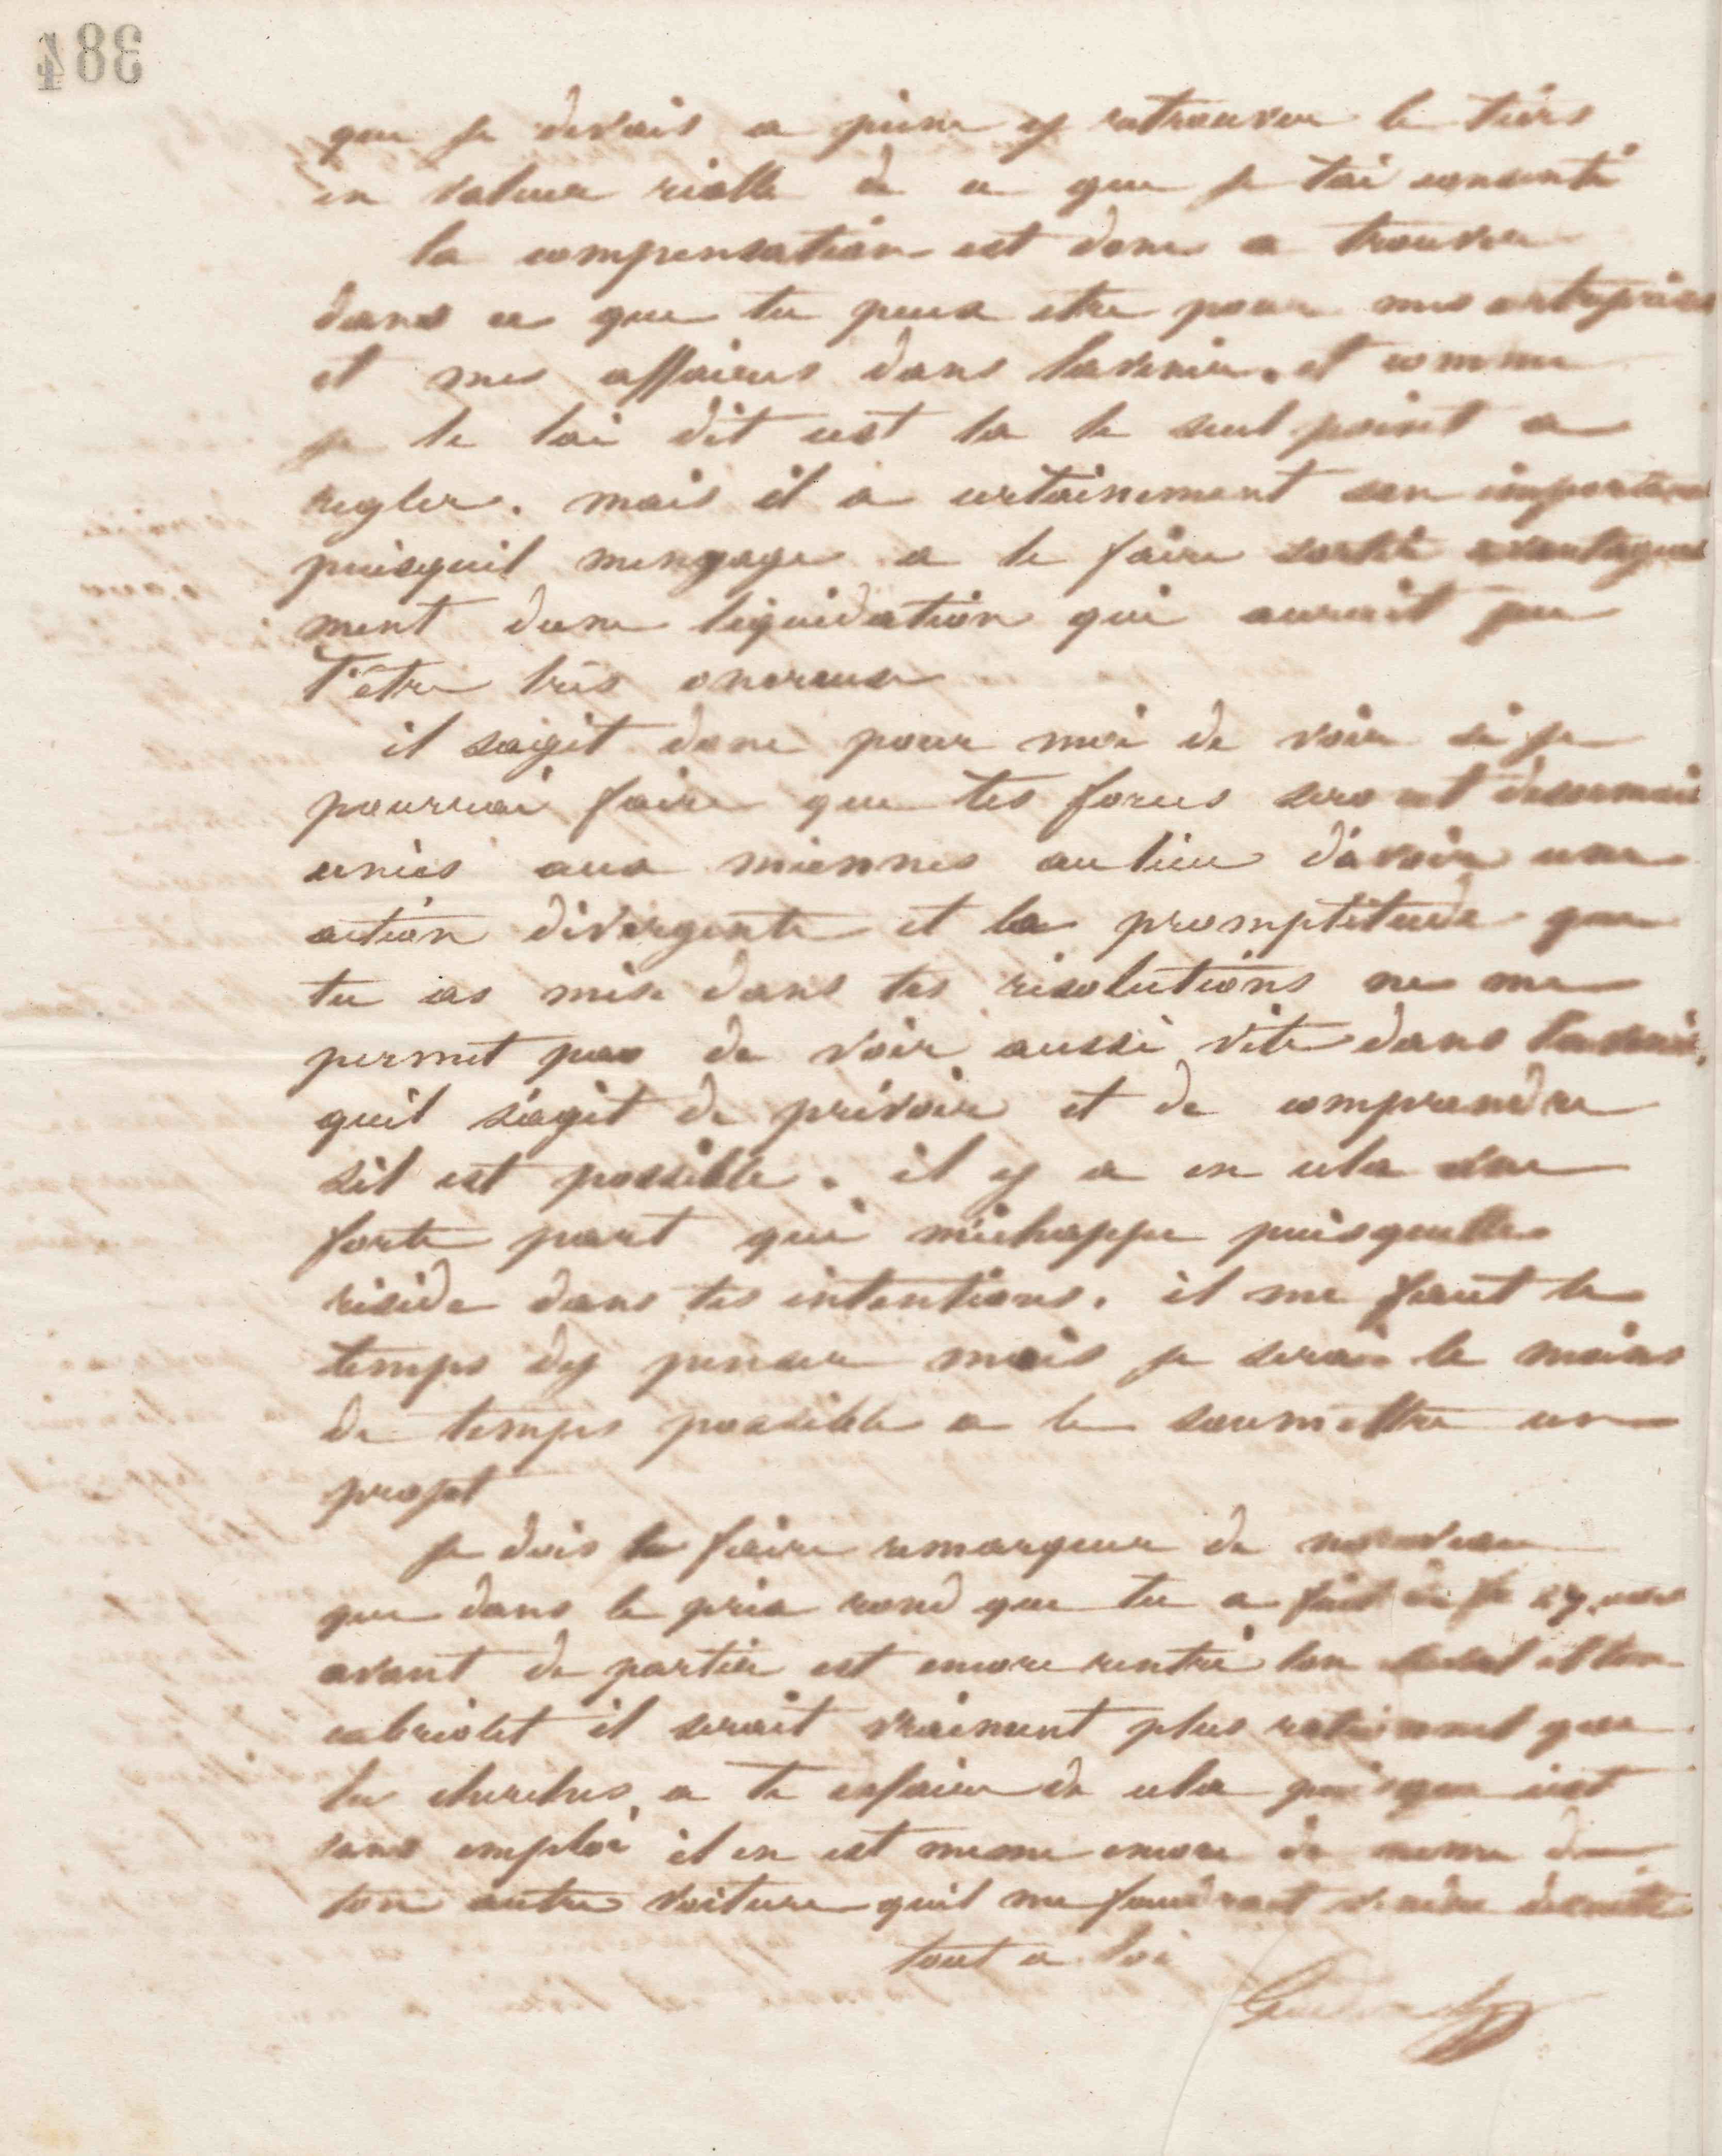 384
que je devais a peine y retrouver le tiers
en valeur réelle de ce que je t'ai consenti
la compensation est donc a trouver
dans ce que tu peux etre pour mes entreprises
et mes affaires dans lavenir. et comme
je te lai dit cest la le seul point a
regler. mais il a certainement son importance
puisquil mengage a te faire sortir avantageuse
ment dune liquidation qui aurait pu
t'être très onereuse
il sagit donc pour moi de voir si je
pourrai faire que tes forces seront désormais
unies aux miennes au lieu d'avoir une
action divergente et la promptitude que
tu as mise dans tes résolutions ne me
permet pas de voir aussi vite dans lavenir.
quil s'agit de prévoir et de comprendre
sil est possible. il y a en cela une
forte part qui m'échappe puisquelle
réside dans tes intentions. il me faut le
temps dy penser mais je serai le moins
de temps possible a te soumettre un
projet
je dois te faire remarquer de nouveau
que dans le prix rond que tu a fait de 27,000
avant de partir est encore rentré ton et ton
cabriolet il serait vraiment plus rationnel que
tu cherches a te défaire de cela puisque cest
sans emploi il en est meme encore de meme de
ton autre voiture quil me faudrait vendre de suite
tout a toi